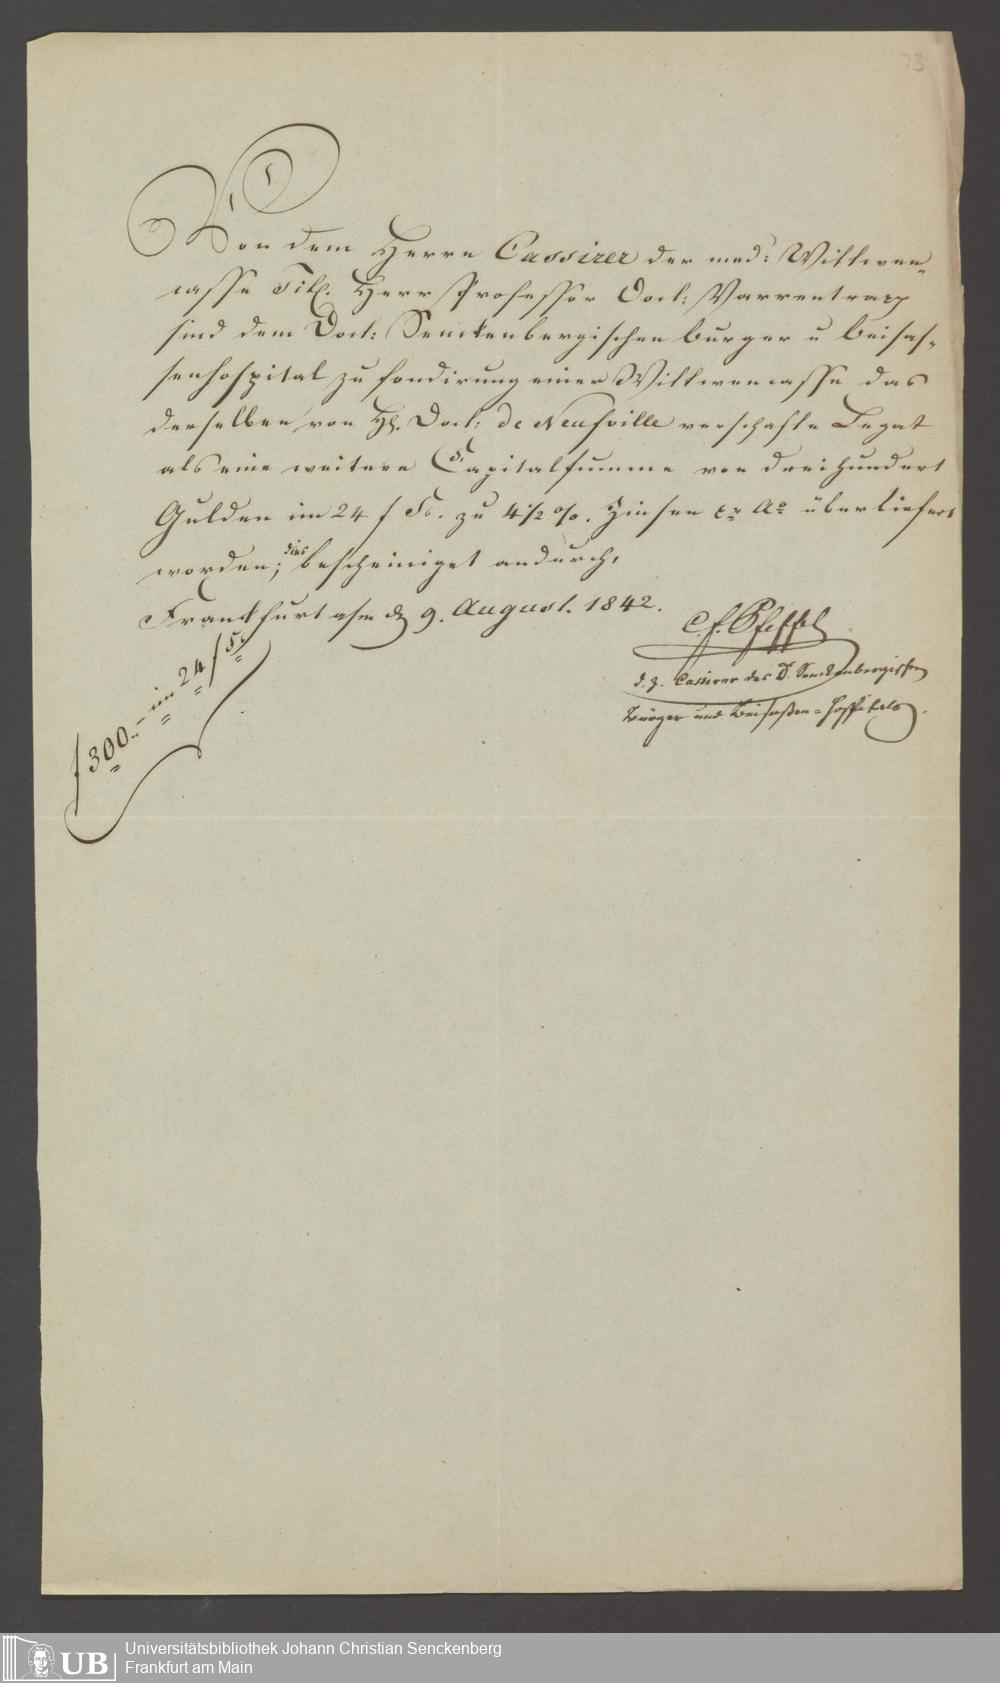 23
Von dem Herrn Cassirer der med: Wittwen-
casse Titl. Herr Professor Doct: Varrentrapp
sind dem Doct: Senckenbergischen burger u beisas-
senhospital zu fondirung einer Wittwencasse das
derselben von H. Doct: de Neufville verschafte Legat
als eine weitere Capitalsumme von dreihundert
Gulden im 24 f Fs. zu 4 1/2 %. Zinsen pr Ao überliefert
worden; dies bescheiniget andurch,
Franckfurt a/m d 9. August. 1842.
C. F. Pfeffel
d. z. Cassirer des Dr. Senckenbergischen
Bürger und Beisaßen-Hospitals.
f 300.- im 24 f Fs
UB Universitätsbibliothek Johann Christian Senckenberg
Frankfurt am Main